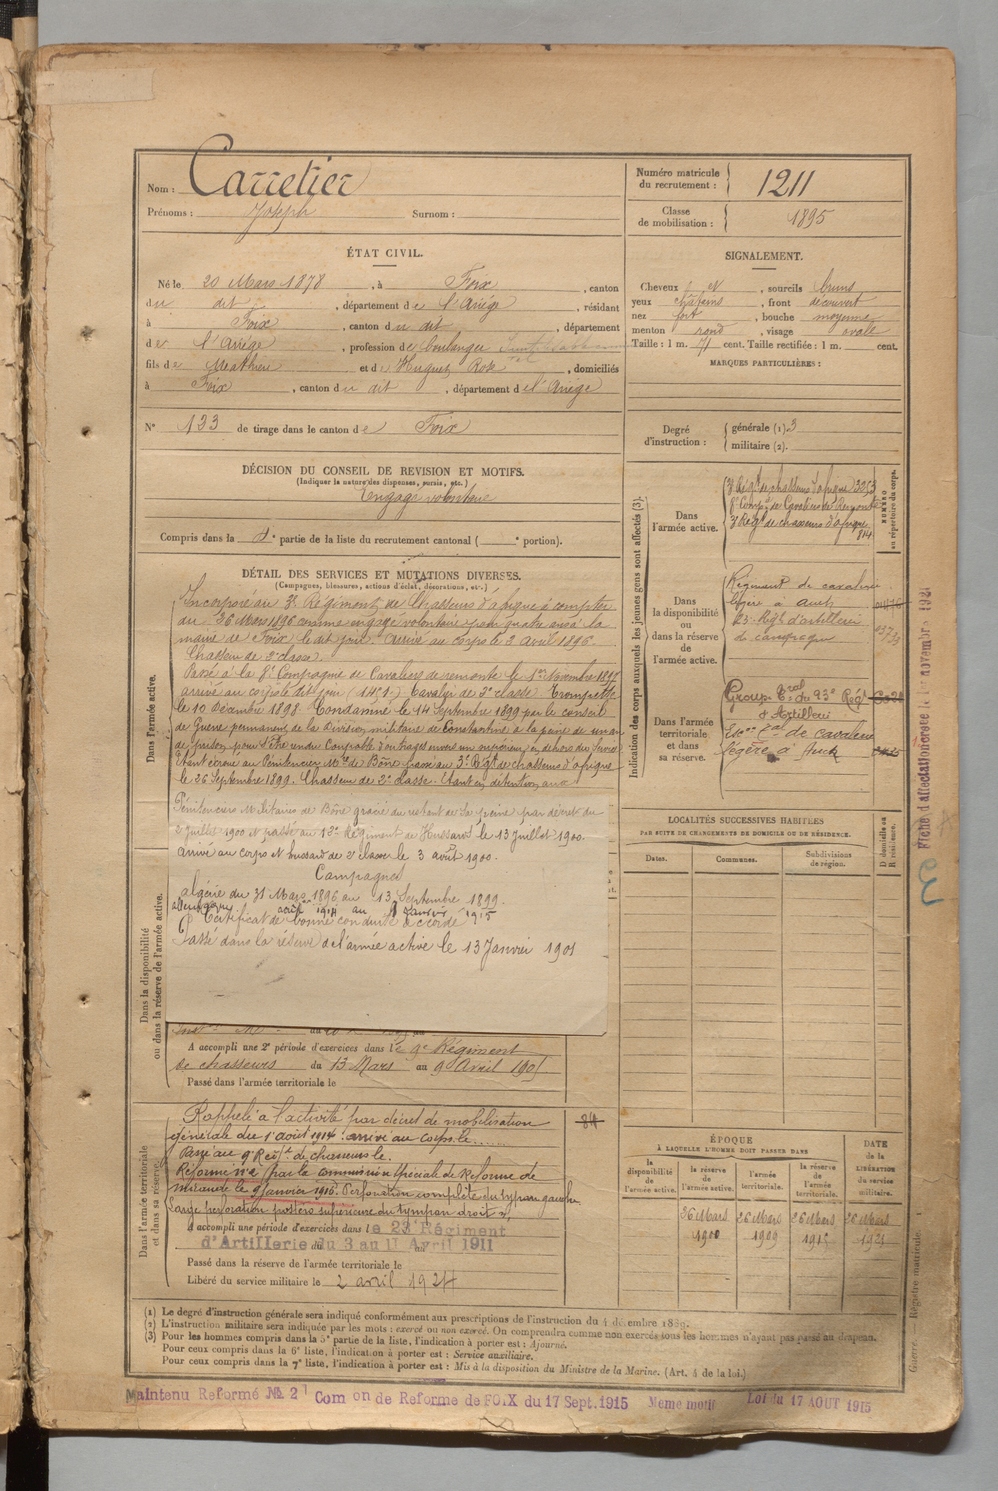 Nom : Carretier
Prénoms : Joseph Surnom :
Numéro matricule du recrutement : 1211
Classe de mobilisation : 1895
ÉTAT CIVIL.
Né le 20 Mars 1878, à Foix, canton
du dit, département de l'Ariège, résidant
à Foix, canton du dit, département
de l'Ariège, profession de boulanger
fils de Mathieu et de Huguet Rose, domiciliés
à Foix, canton du dit, département de l'Ariège
N° 133 de tirage dans le canton de Foix
SIGNALEMENT.
Cheveux et, sourcils bruns
yeux châtains, front découvert
nez fort, bouche moyenne
menton rond, visage ovale
Taille : 1 m. 71 cent. Taille rectifiée : 1 m. cent.
MARQUES PARTICULIÈRES :
Degré d'instruction : générale (1). 3
militaire (2).
DÉCISION DU CONSEIL DE REVISION ET MOTIFS.
(Indiquer la nature des dispenses, sursis, etc.)
Engagé volontaire
Compris dans la partie de la liste du recrutement cantonal ( ° portion).
DÉTAIL DES SERVICES ET MUTATIONS DIVERSES.
(Campagnes, blessures, actions d'éclat, décorations, etc.)
Dans l'armée active.
Incorporé au 3e Régiment de Chasseurs d'afrique à compter
du 26 Mars 1896 comme engagé volontaire pour quatre ans à la
mairie de Foix le dit jour. Arrivé au corps le 2 avril 1896.
Chasseur de 2e classe.
Passé à la 8e Compagnie de Cavaliers de remonte le 1er Novembre 1897
arrivé au corps le dit jour Cavalier de 2e classe Trompette
le 10 Décembre 1898. Condamné le 14 Septembre 1899 par le conseil
de Guerre permanent de la Division militaire de Constantine à la peine de un an
de prison pour s'être rendu Coupable d'outrages envers un supérieur en dehors du service
Étant écroué au Pénitencier Mre de Bône passé au 3e Régt de chasseurs d'afrique
le 26 Septembre 1899. Chasseur de 2e classe. Étant en détention aux
Pénitenciers Militaires de Bône gracié du restant de sa peine par décret du
2 Juillet 1900 et passé au 13e Régiment de Hussards le 13 Juillet 1900.
Arrivé au corps et hussard de 2e classe le 3 août 1900.
Campagnes
Algérie du 31 Mars 1896 au 13 Septembre 1899
août 1914 au Janvier 1915
Certificat de bonne conduite accordé
Passé dans la réserve de l'armée active le 13 Janvier 1901
Dans la disponibilité ou dans la réserve de l'armée active.
A accompli une 2e période d'exercices dans le 9e Régiment
de chasseurs du 13 Mars au 9 Avril 1905
Passé dans l'armée territoriale le
Dans l'armée territoriale et dans sa réserve.
Rappelé à l'activité par décret de mobilisation
générale du 1er aout 1914. arrivé au corps le ......
Passé au 9e Régt de chasseurs le.
Réformé n°2 par la commission spéciale de Réforme de
Mirande le 9 janvier 1915. Perforation complète du tympan gauche
Large perforation postéro supérieure du tympan droit
A accompli une période d'exercices dans le 23e Régiment
d'Artillerie du 3 au 11 Avril 1911
Passé dans la réserve de l'armée territoriale le
Libéré du service militaire le 2 avril 1924
84
Indication des corps auxquels les jeunes gens sont affectés (3).
NUMÉRO au répertoire du corps.
Dans l'armée active.
3e Régt de chasseurs d'afrique 3253
8e Compie de Cavaliers de Remonte
3e Régt de chasseurs d'afrique
814
Dans la disponibilité ou dans la réserve de l'armée active.
Régiment de cavalerie
légère à Auch
23e Régt d'artillerie
de campagne
Dans l'armée territoriale et dans sa réserve.
Groupe Tal du 23e Régt
d'Artillerie
Escon Tal de cavalerie
légère à Auch
LOCALITÉS SUCCESSIVES HABITÉES
PAR SUITE DE CHANGEMENTS DE DOMICILE OU DE RÉSIDENCE.
Dates. Communes. Subdivisions de région. D domicile ou R résidence.
ÉPOQUE
À LAQUELLE L'HOMME DOIT PASSER DANS
DATE de la LIBÉRATION du service militaire.
la disponibilité de l'armée active. la réserve de l'armée active. l'armée territoriale. la réserve de l'armée territoriale.
26 Mars 1900 26 Mars 1909 26 Mars 1915 26 Mars 1921
Fiche d'affectation créée le 1er novembre 1921
(1) Le degré d'instruction générale sera indiqué conformément aux prescriptions de l'instruction du 4 décembre 1889.
(2) L'instruction militaire sera indiquée par les mots : exercé ou non exercé. On comprendra comme non exercés tous les hommes n'ayant pas passé au drapeau.
(3) Pour les hommes compris dans la 5e partie de la liste, l'indication à porter est : Ajourné.
Pour ceux compris dans la 6e liste, l'indication à porter est : Service auxiliaire.
Pour ceux compris dans la 7e liste, l'indication à porter est : Mis à la disposition du Ministre de la Marine. (Art. 4 de la loi.)
Guerre. Registre matricule.
Maintenu Reformé No. 2 Com on de Reforme de FOIX du 17 Sept. 1915 Même motif Loi du 17 AOUT 1915